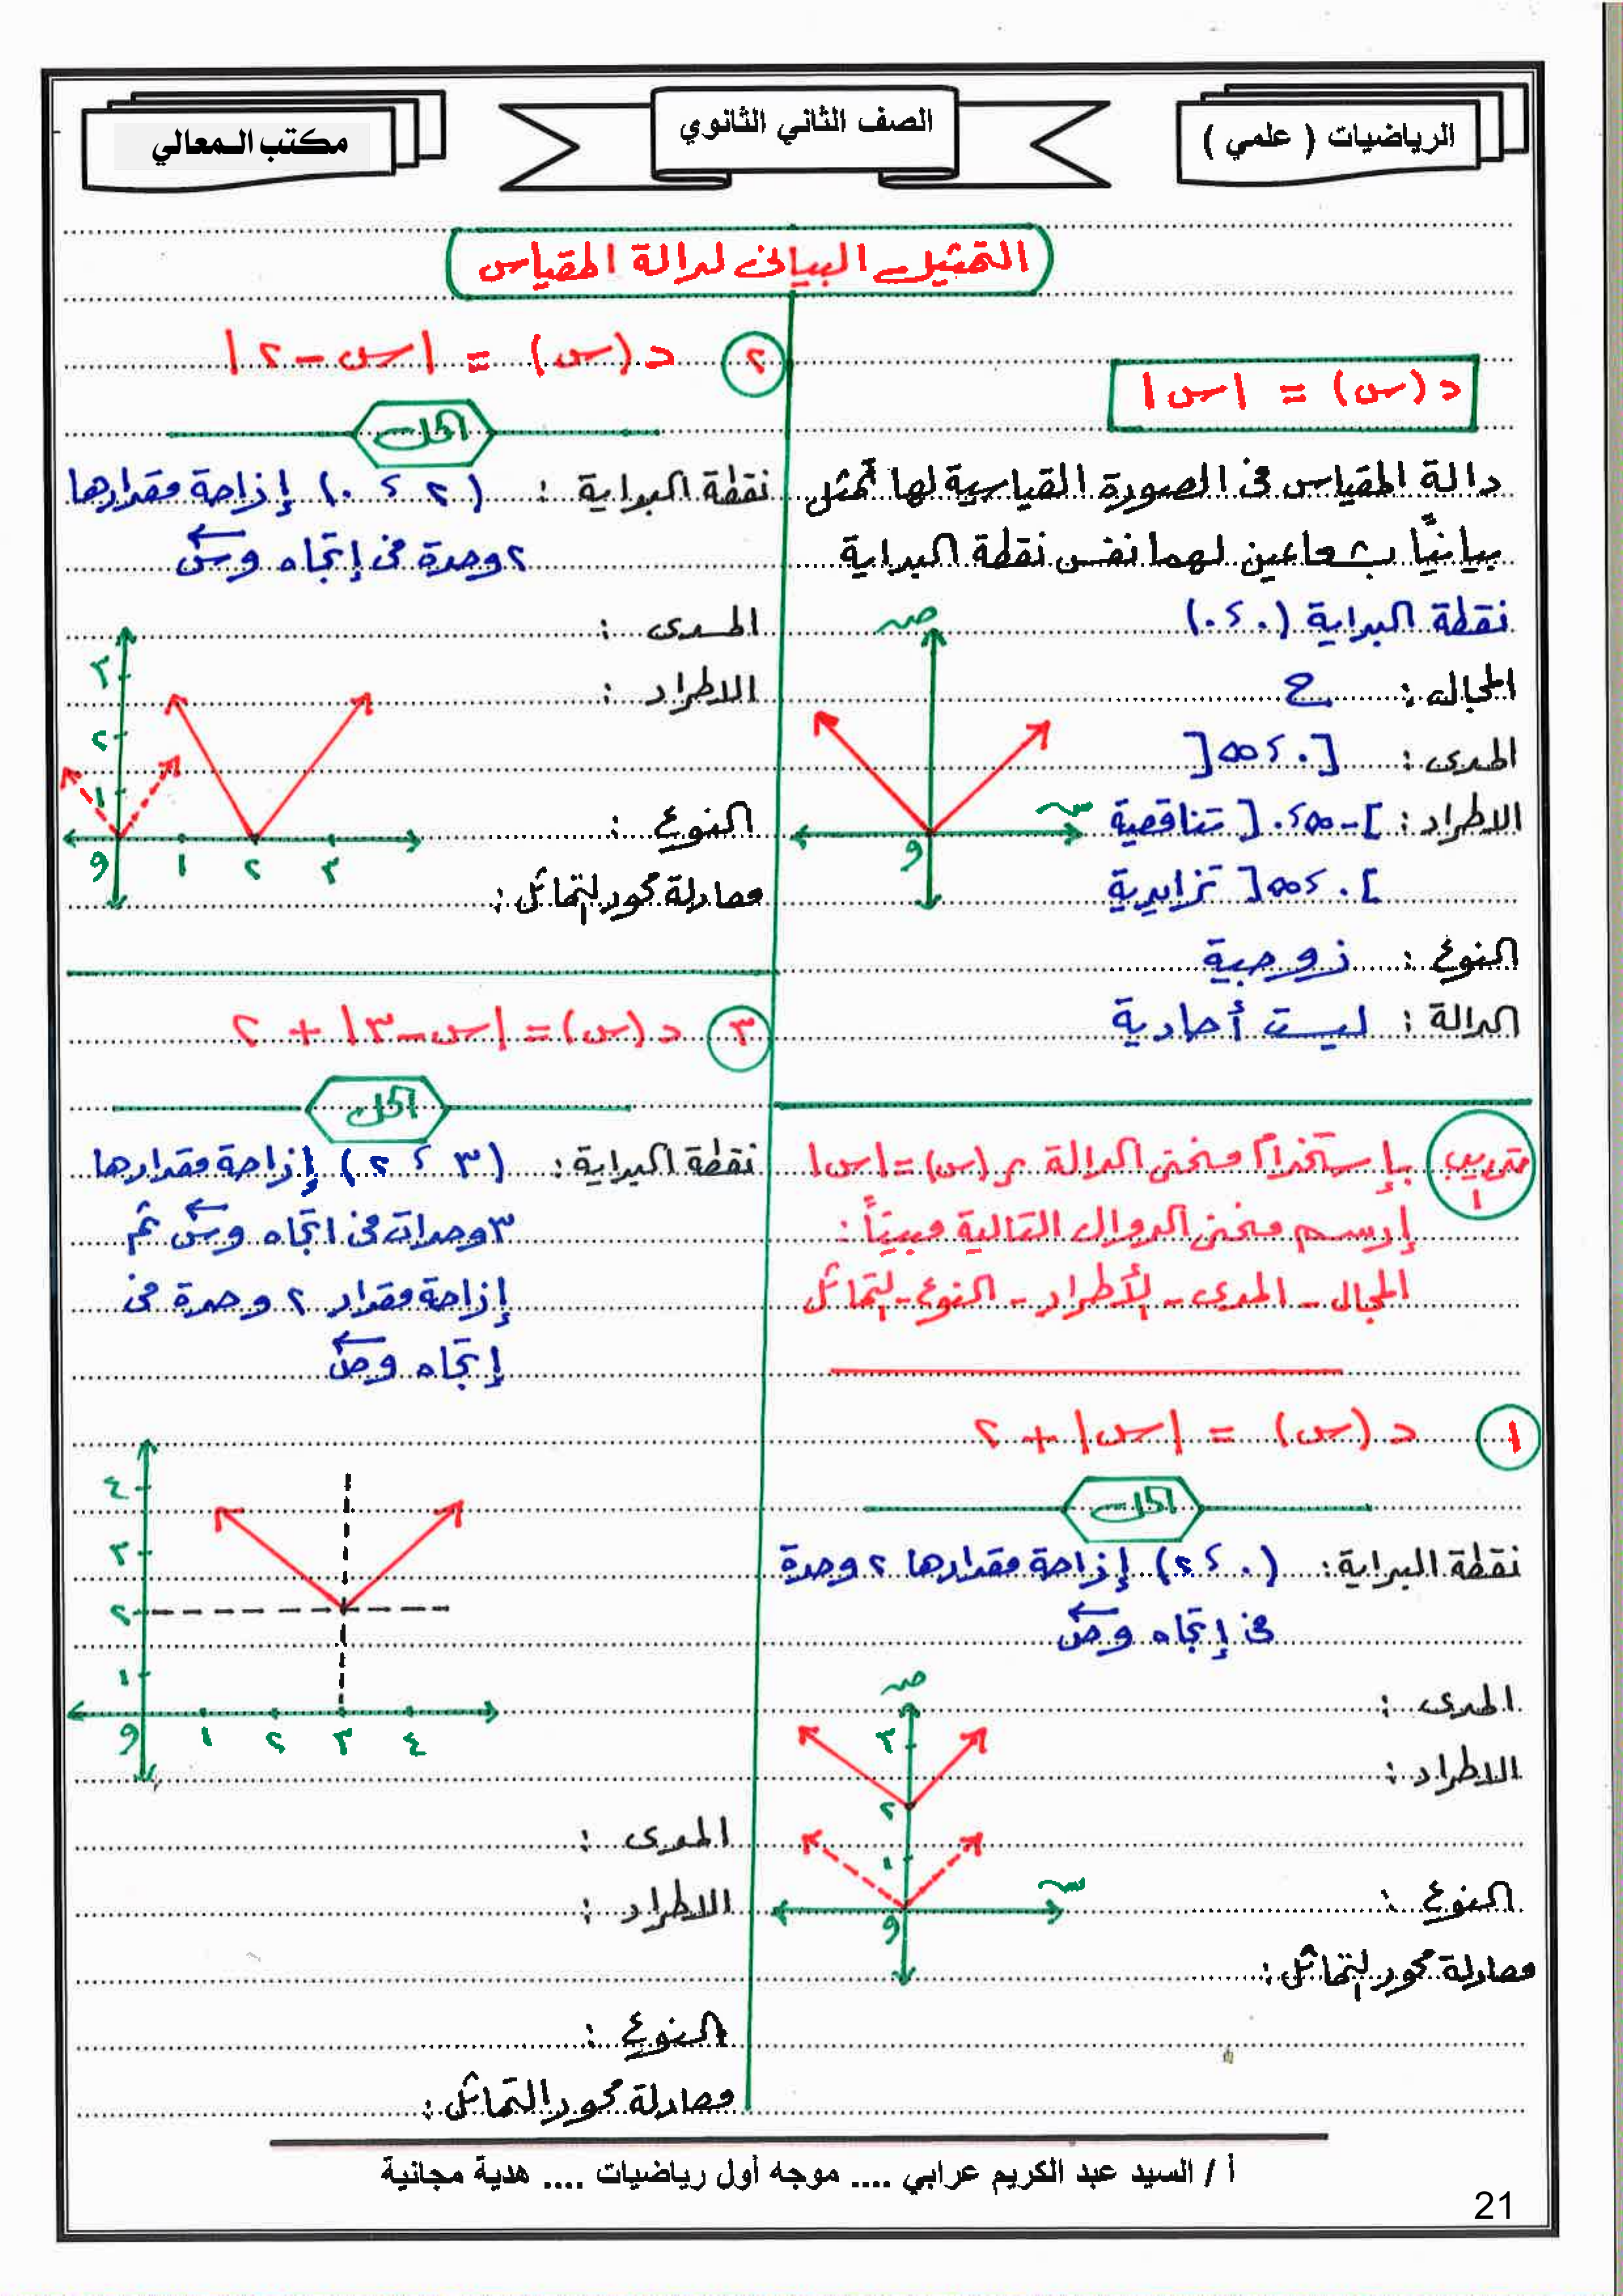 الرياضيات ( علمي )
الصف الثاني الثانوي
مكتب المعالي
التمثيل البيانى لدالة المقياس
د (س) = |س|
دالة المقياس فى الصورة القياسية لها تُمثل
بيانيًا بشعاعين لهما نفس نقطة البداية
نقطة البداية (٠ ، ٠)
المجال : ح
المدى : [٠ ، ∞[
الاطراد : ]-∞ ، ٠[ تناقصية
]٠ ، ∞[ تزايدية
النوع : زوجية
الدالة : ليست أحادية
ص
س
و
تدريب ١
بإستخدام منحنى الدالة ر (س) = |س|
إرسم منحنى الدوال التالية مبيناً :
المجال - المدى - الأطراد - النوع - التماثل
١ د (س) = |س| + ٢
الحل
نقطة البداية : (٠ ، ٢) إزاحة مقدارها ٢ وحدة
فى إتجاه وص
المدى :
الاطراد :
النوع :
معادلة محور التماثل :
ص
٣
٢
١
س
و
٢ د (س) = |س - ٢|
الحل
نقطة البداية : (٢ ، ٠) إزاحة مقدارها
٢ وحدة فى إتجاه وس
المدى :
الاطراد :
النوع :
معادلة محور التماثل :
٣
٢
١
و ١ ٢ ٣
٣ د (س) = |س - ٣| + ٢
الحل
نقطة البداية : (٣ ، ٢) إزاحة مقدارها
٣ وحدات فى اتجاه وس ثم
إزاحة مقدار ٢ وحدة فى
إتجاه وص
٤
٣
٢
١
و ١ ٢ ٣ ٤
المدى :
الاطراد :
النوع :
معادلة محور التماثل :
أ / السيد عبد الكريم عرابي .... موجه أول رياضيات .... هدية مجانية
21